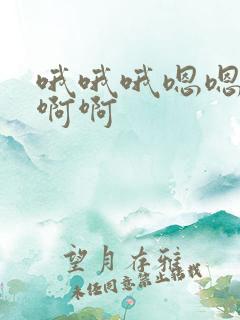 哦哦哦嗯嗯
啊啊
望月存雅
未经同意禁止转载